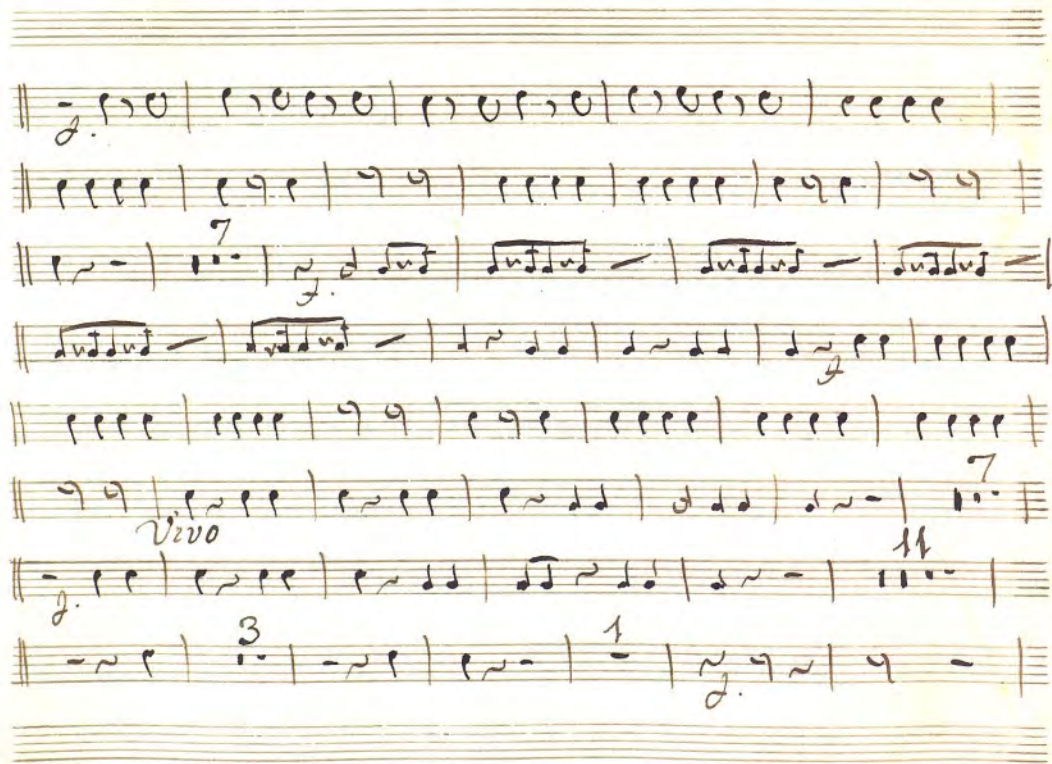 f.
7
f.
f.
7
Vivo
f.
11
3
1
f.